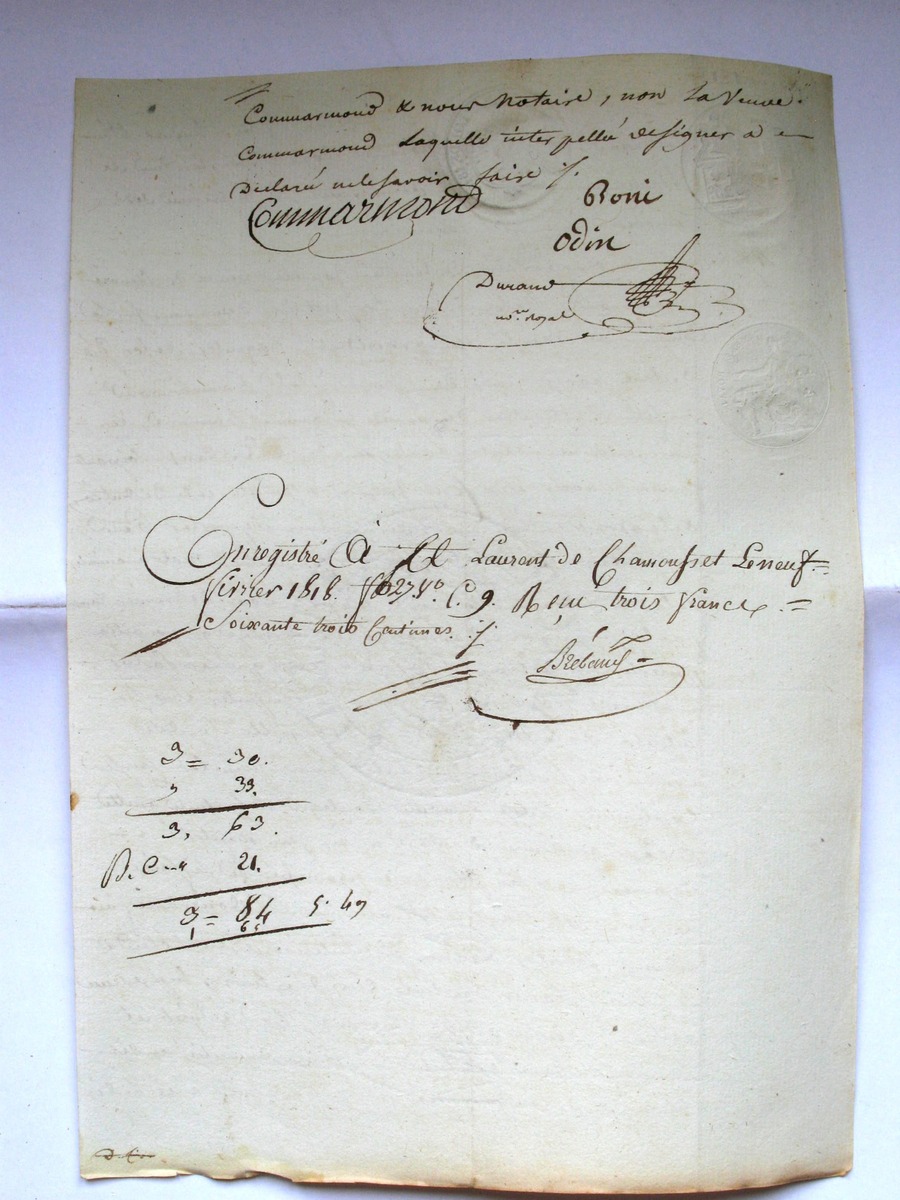 Commarmond & nous Notaire, non La Veuve.
Commarmond Laquelle interpellée designer a
Declaré ne le savoir faire ./.
Commarmond
Boni
Odin
Durand
nore. Royal
Enregistré À St Laurent de Chamousset Le neuf =
février 1818. fo 27. vo. C. 9. Reçu trois francs =
Soixante trois Centimes ./.
3 = 30.
33.
3, 63.
21.
3 = 84 5. 49
1 65